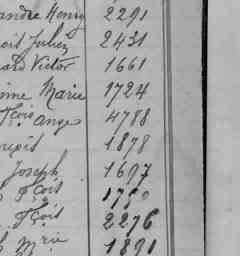 andre Henry 2291
oit Julien 2431
ard Victor 1661
ine Marie 1724
fçois ange 4788
1878
Joseph 1697
fçois
fçois 2276
Mrie 1891